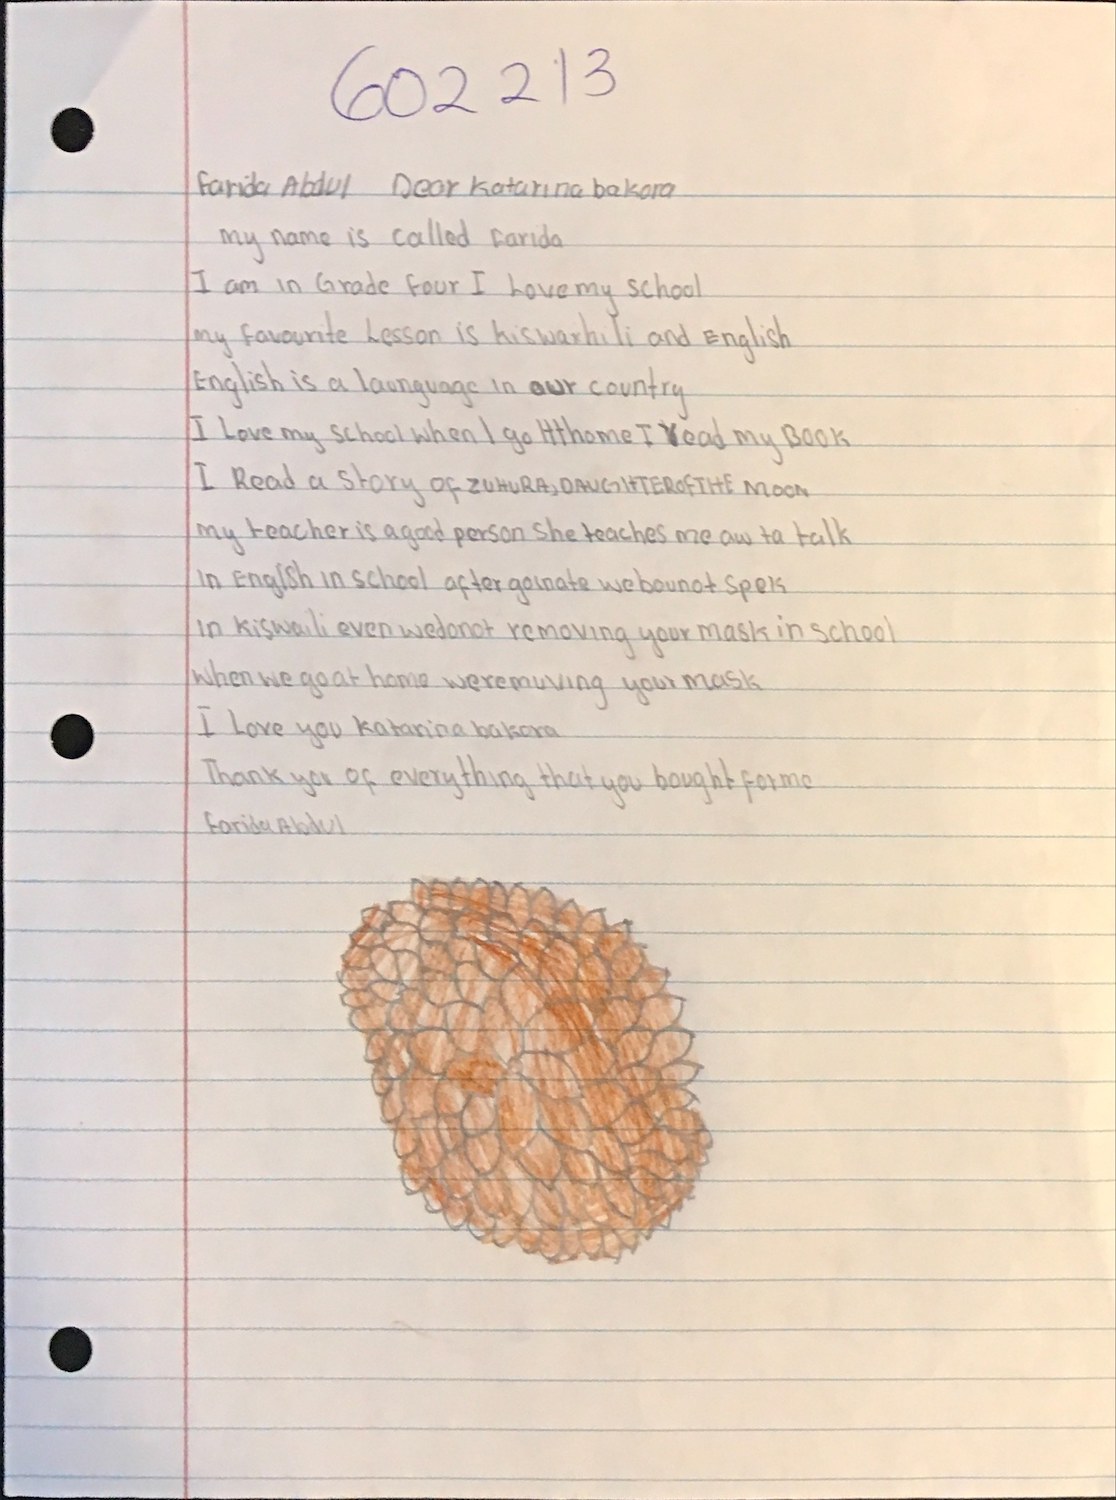 602213
Farida Abdul Dear Katarina bakora
my name is called Farida
I am in Grade Four I Love my school
my favourite Lesson is kiswarhili and English
English is a launguage in our country
I Love my school when I go Hthome I Read my Book
I Read a Story of ZUHURA, DAUGHTER OF THE MOON
my teacher is a good person She teaches me aw ta talk
in English in school after we not spek
in kiswaili even wedonot removing your mask in school
when we go at home weremuving your mask
I Love you Katarina bakora
Thank you of everything that you bought for me
Farida Abdul